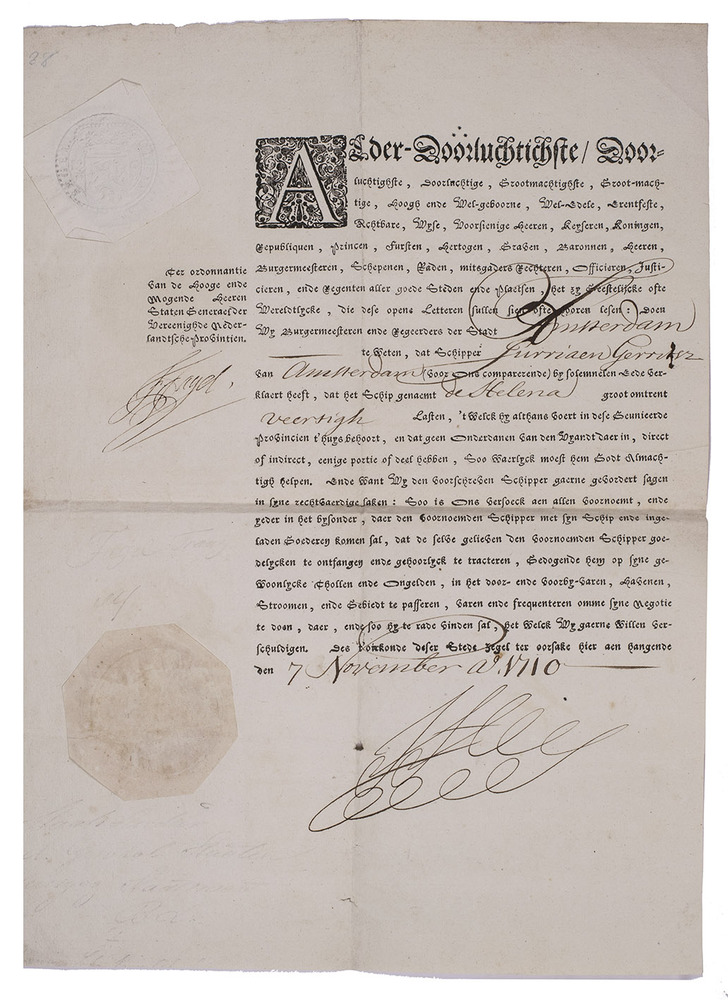 28
Ter ordonnantie
van de Hooge ende
Mogende Heeren
Staten Generael der
Vereenighde Neder-
landtsche Provintien.
ALder-Doorluchtichste / Door-
luchtighste, Doorluchtige, Grootmachtighste, Groot-mach-
tige, Hoogh ende Wel-geboorne, Wel-Edele, Erentfeste,
Achtbare, Wyse, Voorsienige Heeren, Keyseren, Koningen,
Republiquen, Princen, Fursten, Hertogen, Graven, Baronnen, Heeren,
Burgermeesteren, Schepenen, Raden, mitsgaders Rechteren, Officieren, Justi-
cieren, ende Regenten aller goede Steden ende Plaetsen, het zy Geestelijcke ofte
Wereldtlycke, die dese opene Letteren sullen sien ofte hooren lesen: Doen
Wy Burgermeesteren ende Regeerders der Stadt Amsterdam
te weten, dat Schipper Jurriaen Gerritsz
van Amsterdam (voor Ons comparerende) by solemnelen Eede ver-
klaert heeft, dat het Schip genaemt de Helena groot omtrent
veertigh Lasten, 't welck hy althans voert in dese Geunieerde
Provincien t'huys behoort, en dat geen Onderdanen van den Vyandt daer in, direct
of indirect, eenige portie of deel hebben, Soo waerlyck moest hem Godt Almach-
tigh helpen. Ende want Wy den voorschreven Schipper gaerne gevordert sagen
in syne rechtvaerdige saken: Soo is Ons versoeck aen allen voornoemt, ende
yeder in het bysonder, daer den voornoemden Schipper met syn Schip ende inge-
laden Goederen komen sal, dat de selve gelieven den voornoemden Schipper goe-
delycken te ontfangen ende gehoorlyck te tracteren, Gedogende hem op syne ge-
woonlycke Thollen ende Ongelden, in het door- ende voorby-varen, Havenen,
Stroomen, ende Gebiedt te passeren, varen ende frequenteren omme syne Negotie
te doen, daer, ende soo hy te rade vinden sal, het welck Wy gaerne willen ver-
schuldigen. Des t'oirkonde deser Stede Zegel ter oorsake hier aen hangende
den 7 November Ao. 1710